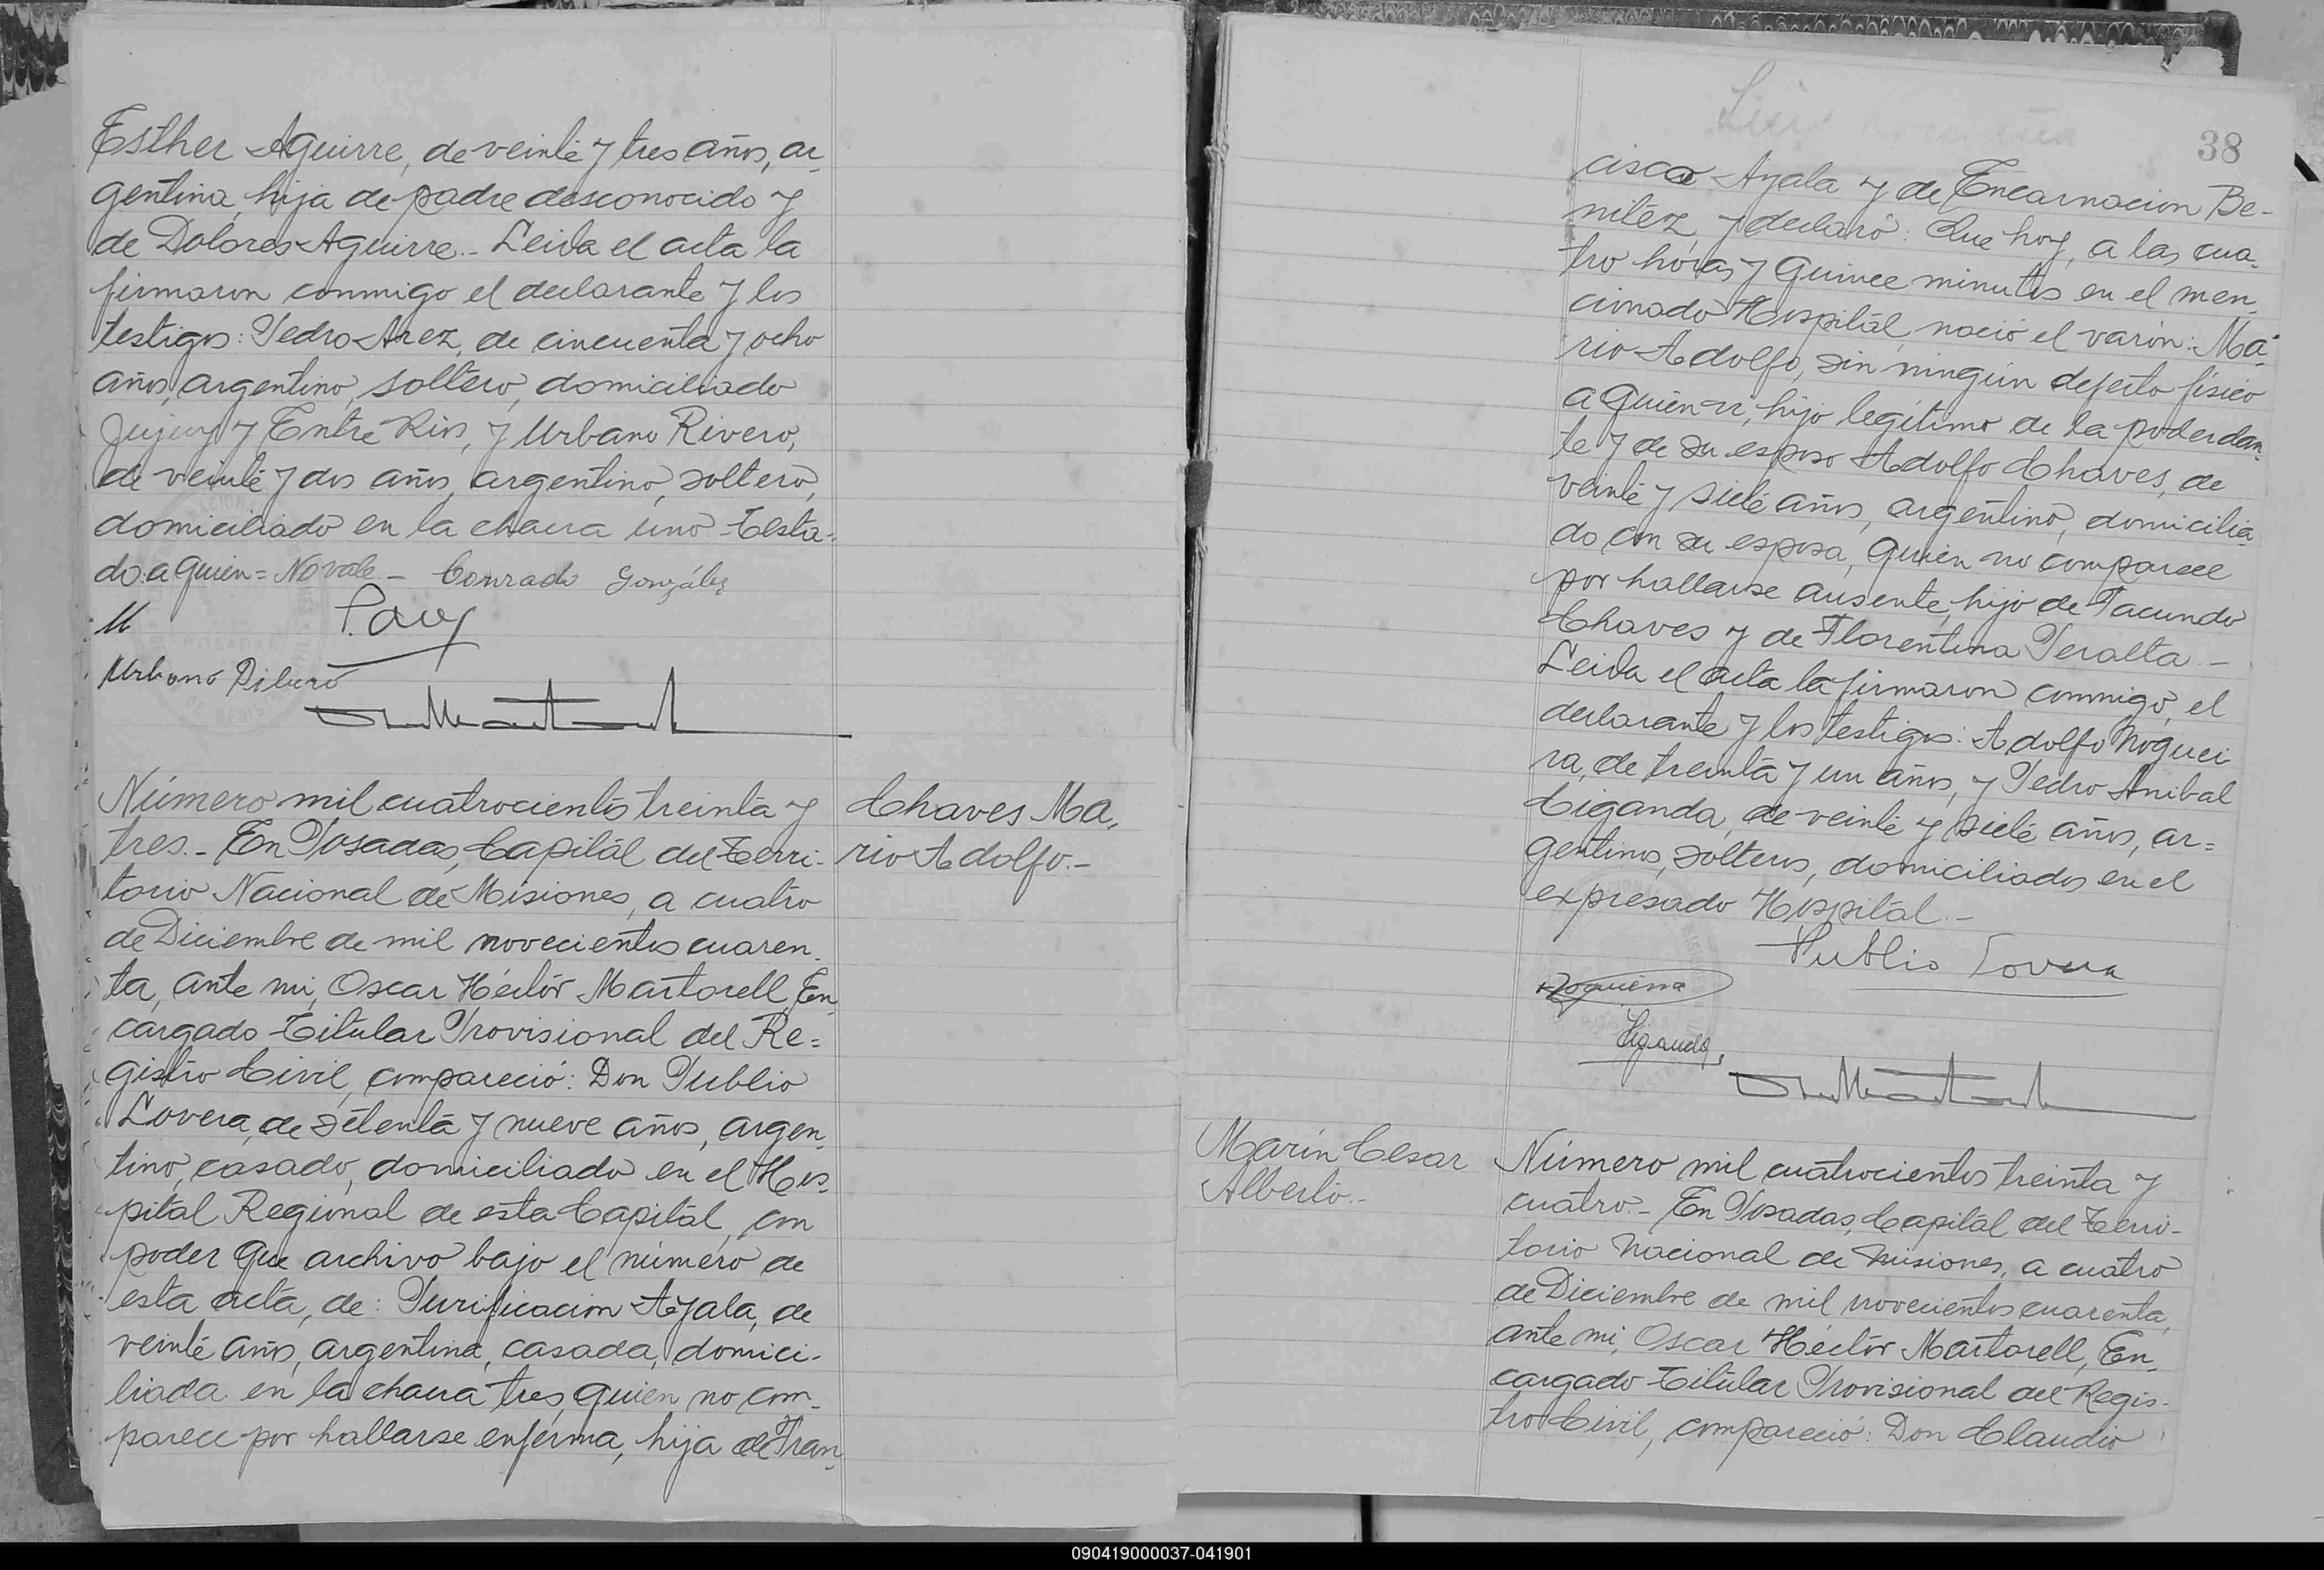 Esther Aguirre, de veinte y tres años, ar-
gentina, hija de padre desconocido y
de Dolores Aguirre.- Leida el acta la
firmaron conmigo el declarante y los
testigos: Pedro Arez, de cincuenta y ocho
años, argentino, soltero, domiciliado
Jujuy y Entre Rios, y Urbano Rivero,
de veinte y dos años, argentino, soltero,
domiciliado en la chacra uno - Testa-
do: a quien = No vale.- Conrado González
P. Arez
Urbano Ribero
Número mil cuatrocientos treinta y
tres.- En Posadas, Capital del Terri-
torio Nacional de Misiones, a cuatro
de Diciembre de mil novecientos cuaren-
ta, ante mi, Oscar Héctor Martorell, En-
cargado Titular Provisional del Re=
gistro Civil, compareció: Don Publio
Lovera, de setenta y nueve años, argen-
tino, casado, domiciliado en el Hos-
pital Regional de esta Capital, con
poder que archivo bajo el número de
esta acta, de: Purificacion Ayala, de
veinte años, argentina, casada, domici-
liada en la chacra tres, quien no com-
parece por hallarse enferma, hija de Fran-
Chaves Ma-
rio Adolfo.-
38
cisco Ayala y de Encarnacion Be-
nitez, y declaró: Que hoy, a las cua-
tro horas y quince minutos en el men-
cionado Hospital, nació el varón: Ma-
rio Adolfo, sin ningún defecto físico
a quien vi, hijo legítimo de la poderdan-
te y de su esposo Adolfo Chaves, de
veinte y siete años, argentino, domicilia-
do con su esposa, quien no comparece
por hallarse ausente, hijo de Facundo
Chaves y de Florentina Peralta.-
Leida el acta la firmaron conmigo, el
declarante y los testigos: Adolfo Noguei
ra, de treinta y un años, y Pedro Anibal
Ciganda, de veinte y siete años, ar=
gentinos, solteros, domiciliados en el
expresado Hospital.-
Publio Lovera
Nogueira
Ciganda
Marin Cesar
Alberto.-
Número mil cuatrocientos treinta y
cuatro.- En Posadas, Capital del Terri-
torio Nacional de Misiones, a cuatro
de Diciembre de mil novecientos cuarenta,
ante mi, Oscar Héctor Martorell, En-
cargado Titular Provisional del Regis-
tro Civil, compareció: Don Claudio
090419000037-041901